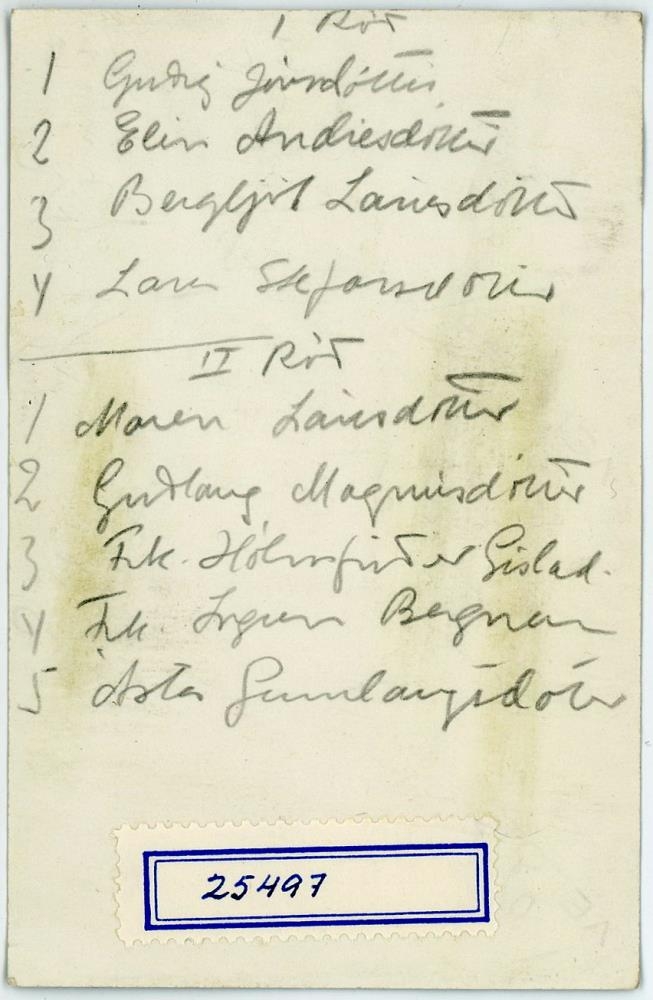 I Röð
1 Guðný Jónsdóttir
2 Elín Andrésdóttir
3 Bergljót Lárusdóttir
4 Lára Stefánsdóttir
II Röð
1 Maren Lárusdóttir
2 Guðlaug Magnúsdóttir
3 Frk. Hólmfríður Gíslad.
4 Frk. Ingunn Bergmann
5 Ásta Gunnlaugsdóttir
25497